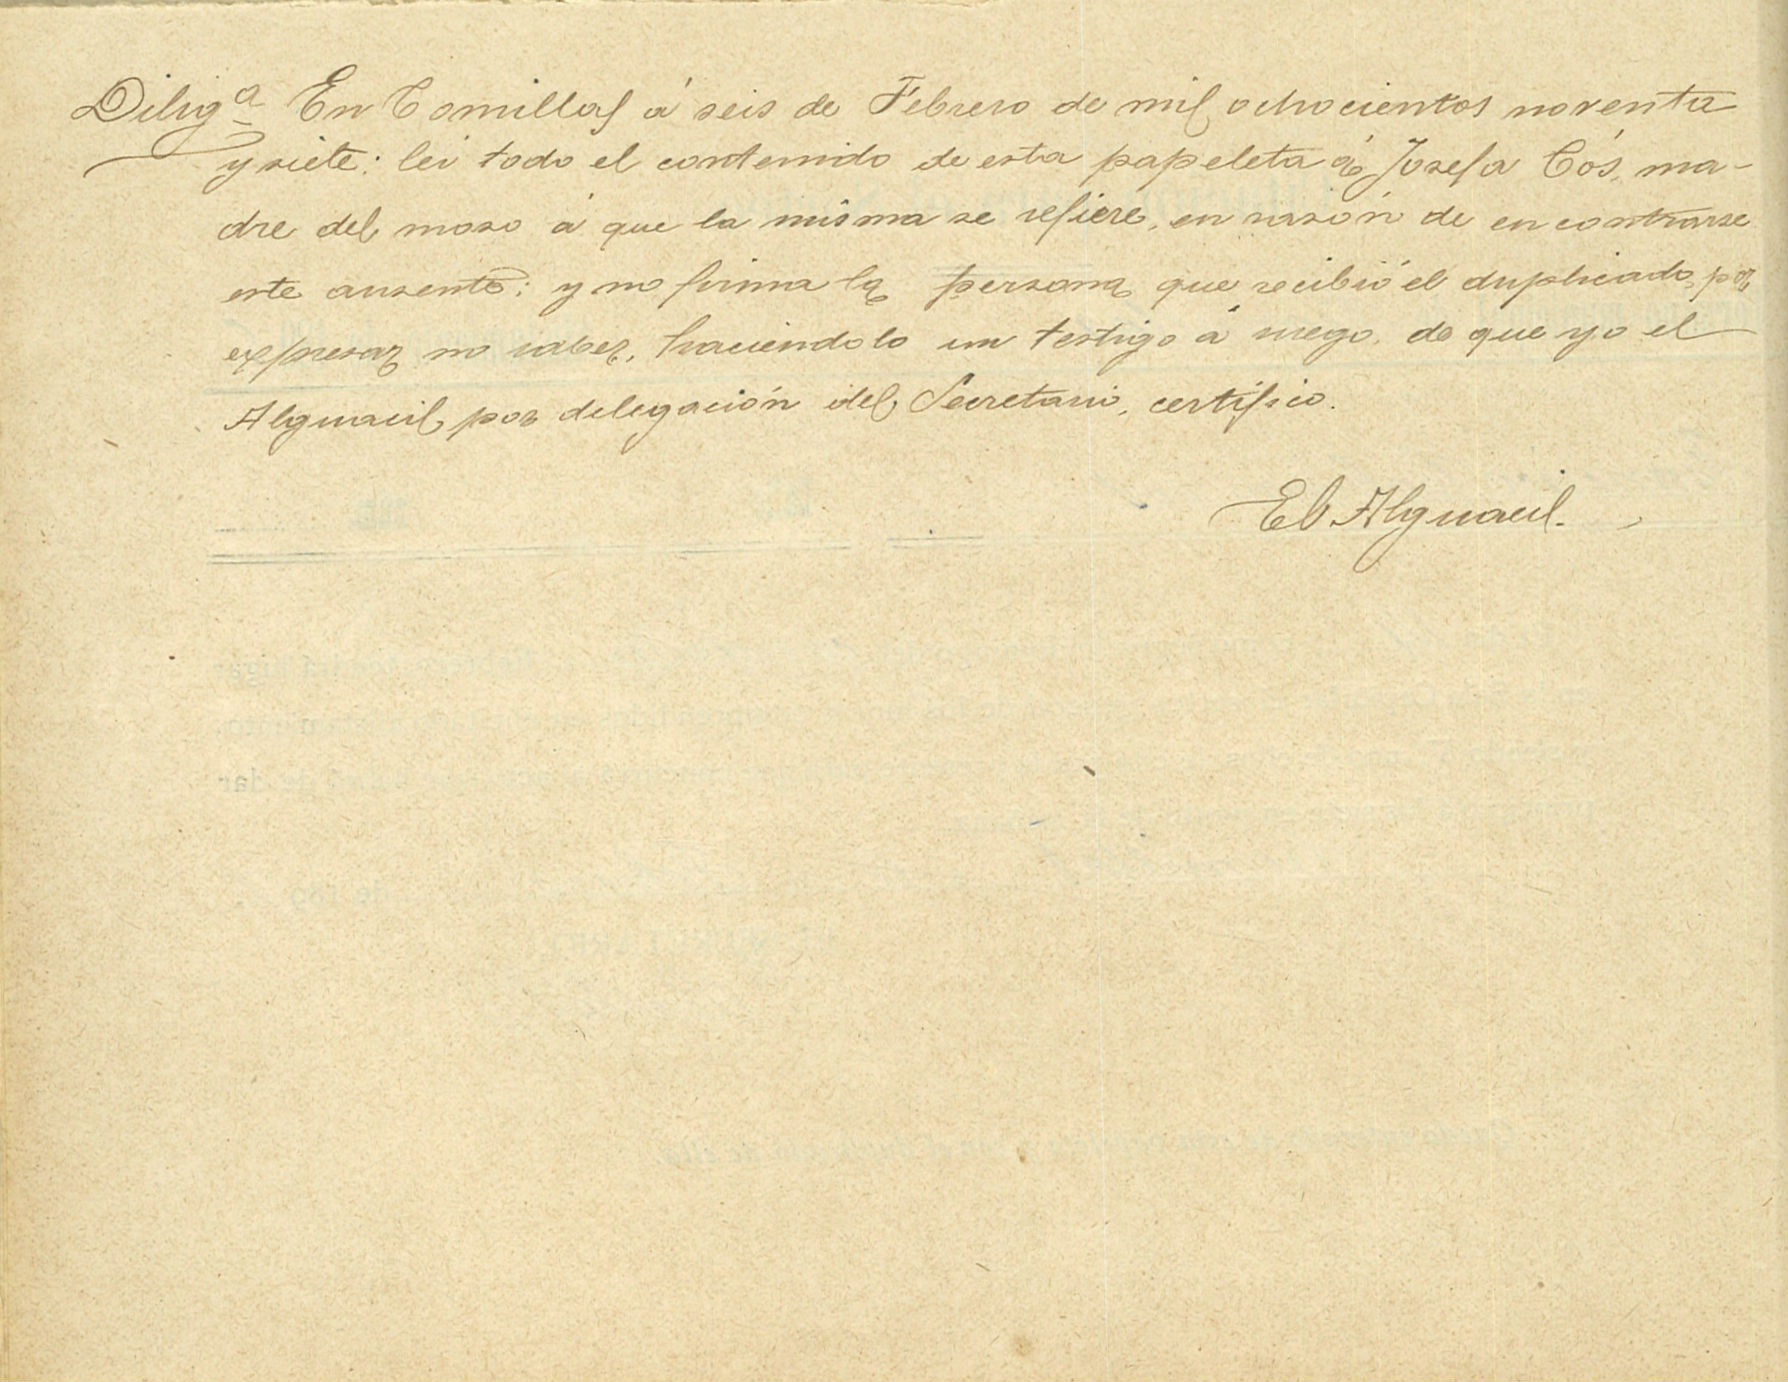 Diligª En Comillas á seis de Febrero de mil ochocientos noventa
y siete: lei todo el contenido de esta papeleta á Josefa Cós, ma-
dre del moso á que la misma se refiere, en rasón de encontrarse
este ausente: y no firma la persona que recibió el duplicado, por
expresar no saber, haciendolo un testigo á ruego, de que yo el
Alguacil, por delegación del Secretario, certifico.
El Alguacil.